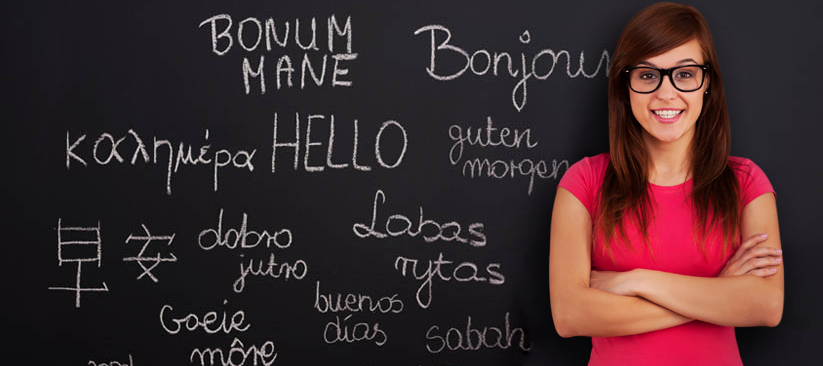 BONUM
MANE
Bonjour
καλημέρα
HELLO
guten
morgen
早安
dobro
jutro
Labas
rytas
Goeie
môre
buenos
días
sabah